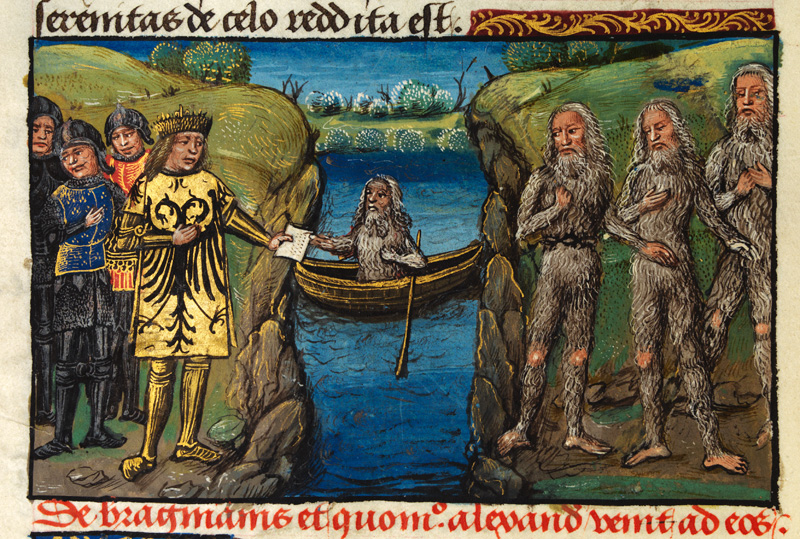 serenitas de celo reddita est.
De bragmanis et quomo. alexand' venit ad eos: